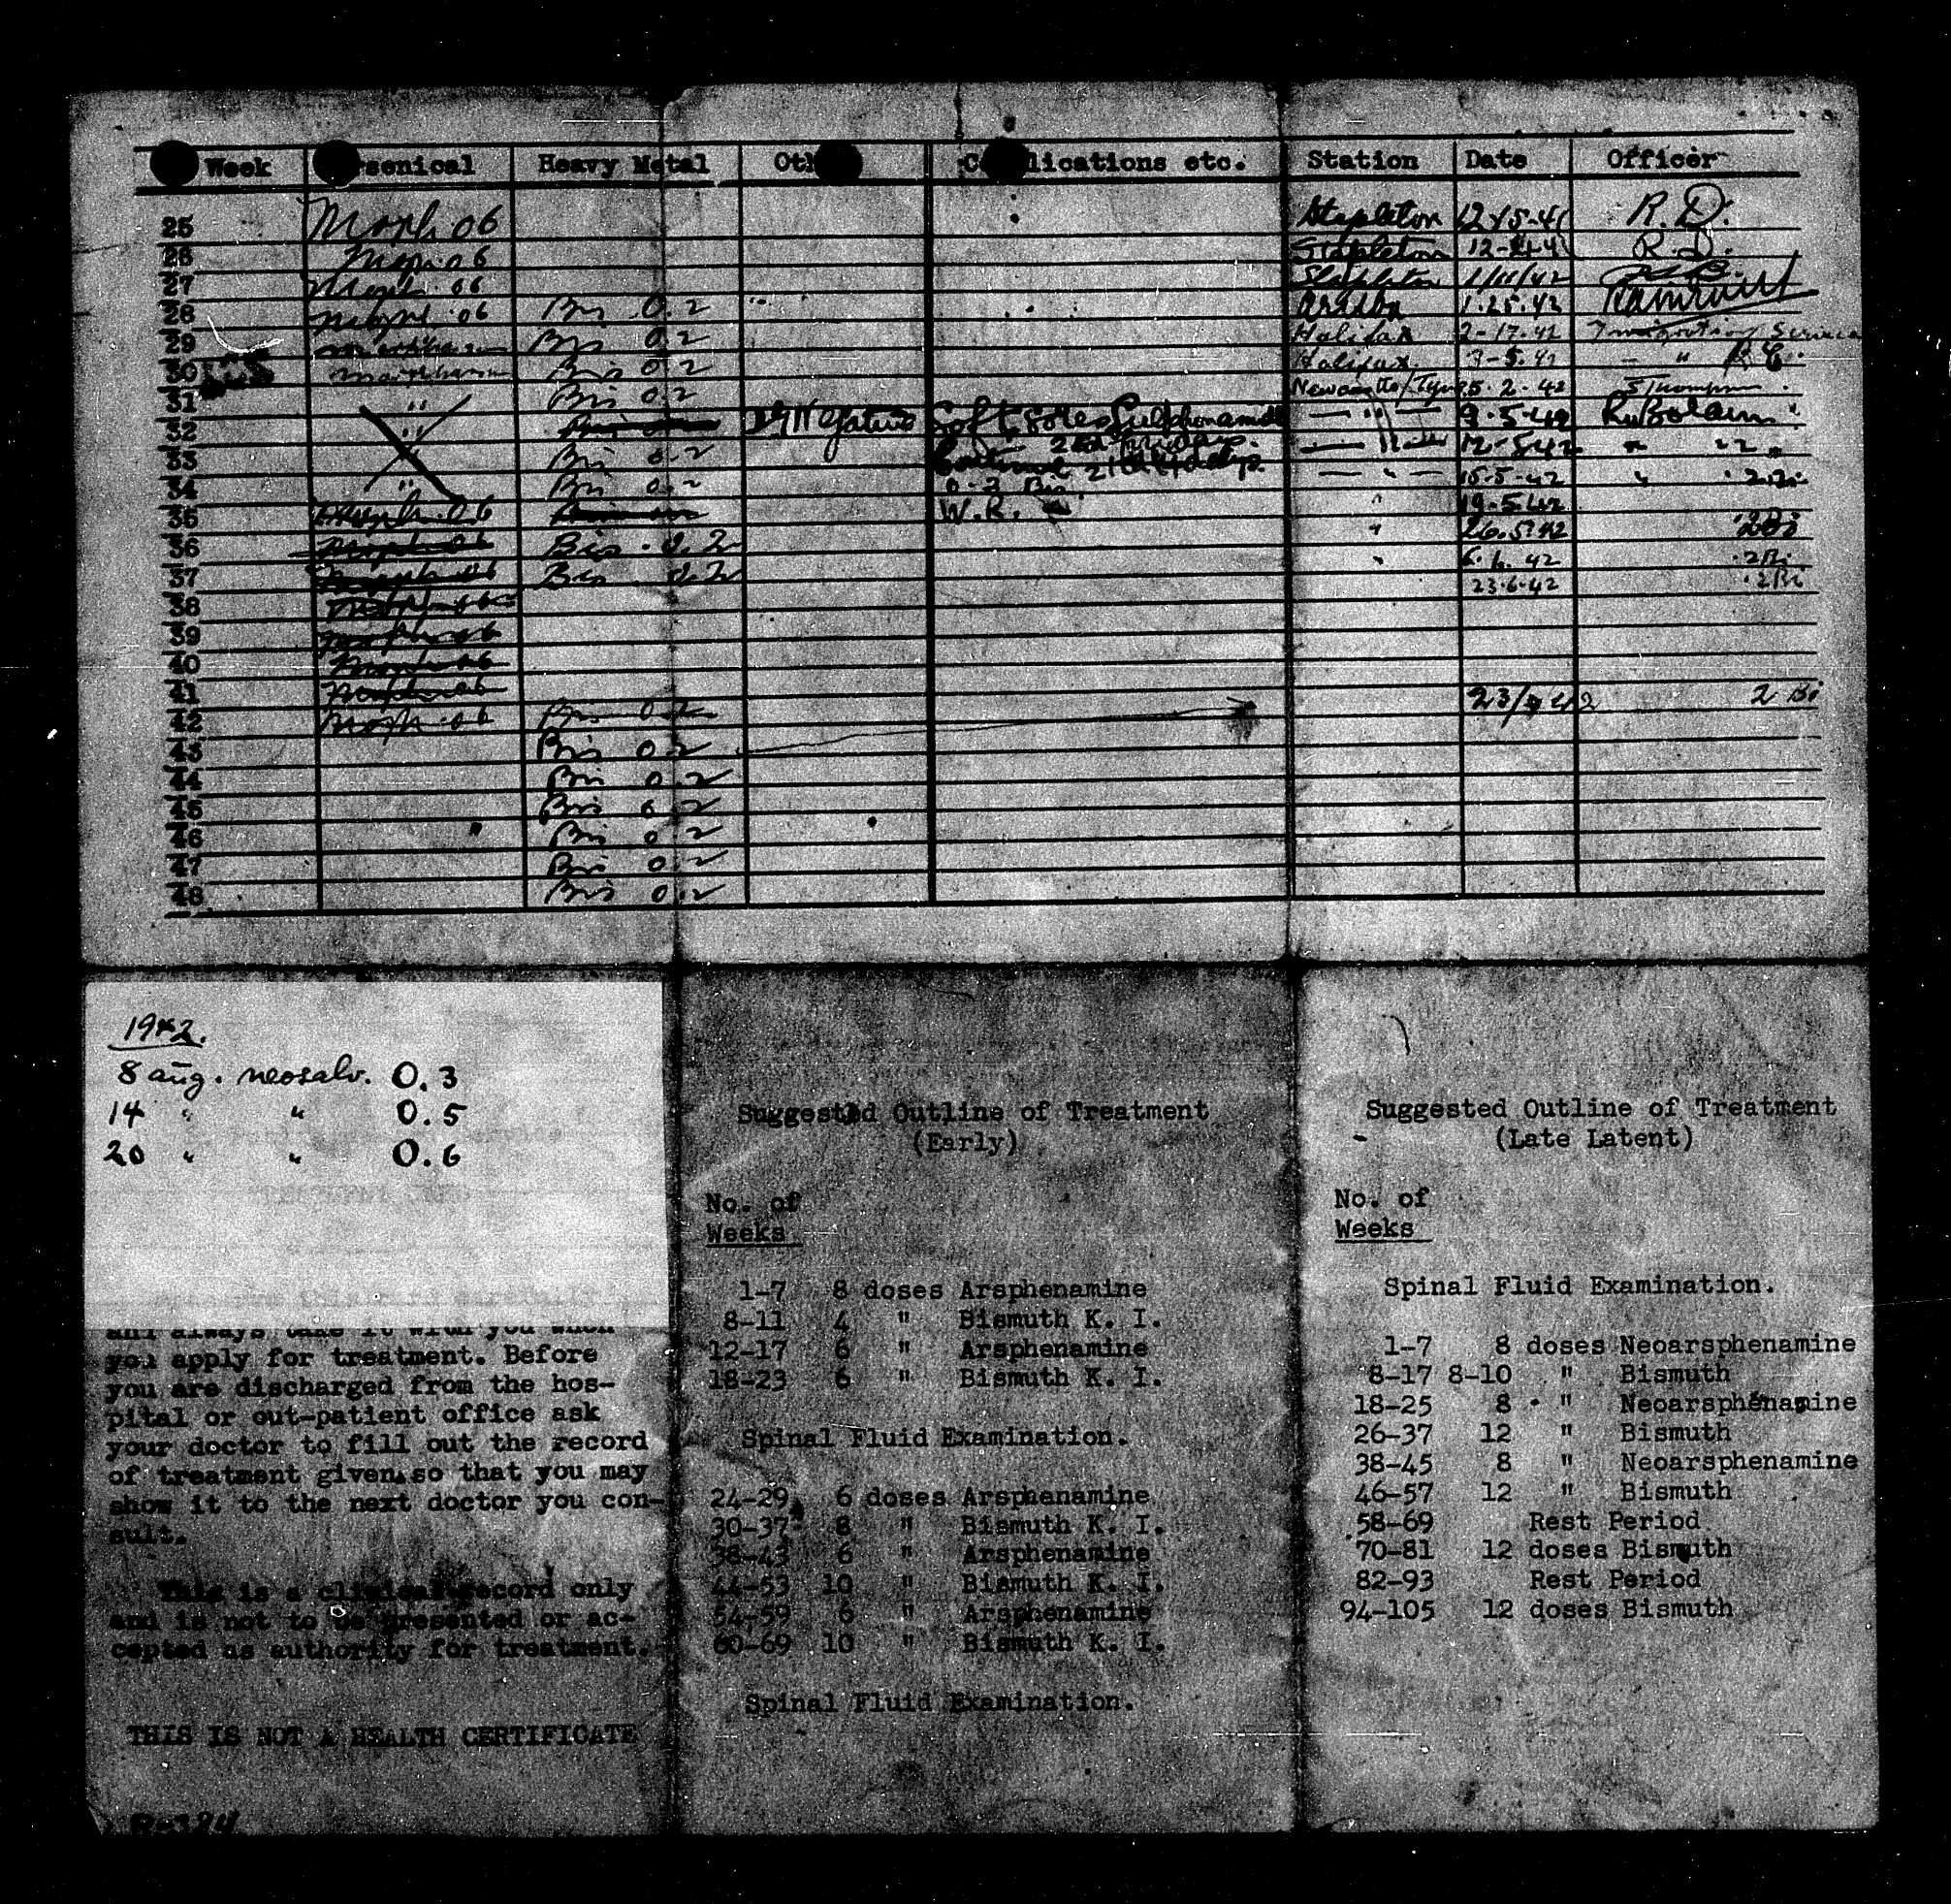 Week senical Heavy Metal Oth lications etc. Station Date Officer
25 Maph .06 Stapleton 12-15-41 R.D.
26 Maph .06 Stapleton R.D.
27 Maph .06 Stapleton 1/11/42
28 Maph .06 Bis 0.2 1.25.42
29 Bis 0.2 Halifax 2-17-42 Immigration
30 Bis 0.2 Halifax "
31 " Bis 0.2 Newcastle/Tyne 5.2.42 Thompson
32 " Soft sores Sulphonamide " 9.5.42
33 " Bis 0.2 12.5.42
34 " Bis 0.2 0.2 Bis " 15.5.42
35 Maph .06 W.R. " 19.5.42
36 Maph .06 Bis 0.2 " 26.5.42
37 Maph .06 Bis 0.2 " 6.6.42 .2Bi
38 Maph .06 23.6.42 .2Bi
39 Maph .06
40 Maph .06
41 Maph .06
42 Maph .06 Bis 0.2 2 Bi
43 Bis 0.2
44 Bis 0.2
45 Bis 0.2
46 Bis 0.2
47 Bis 0.2
48 Bis 0.2
1942.
8 aug. neosalv. 0.3
14 " " 0.5
20 " " 0.6
and always take it with you when
you apply for treatment. Before
you are discharged from the hos-
pital or out-patient office ask
your doctor to fill out the record
of treatment given so that you may
show it to the next doctor you con-
sult.
This is a clinical record only
and is not to be presented or ac-
cepted as authority for treatment.
THIS IS NOT A HEALTH CERTIFICATE
Suggested Outline of Treatment
(Early)
No. of
Weeks
1-7 8 doses Arsphenamine
8-11 4 " Bismuth K. I.
12-17 6 " Arsphenamine
18-23 6 " Bismuth K. I.
Spinal Fluid Examination.
24-29 6 doses Arsphenamine
30-37 8 " Bismuth K. I.
38-43 6 " Arsphenamine
44-53 10 " Bismuth K. I.
54-59 6 " Arsphenamine
60-69 10 " Bismuth K. I.
Spinal Fluid Examination.
Suggested Outline of Treatment
(Late Latent)
No. of
Weeks
Spinal Fluid Examination.
1-7 8 doses Neoarsphenamine
8-17 8-10 " Bismuth
18-25 8 " Neoarsphenamine
26-37 12 " Bismuth
38-45 8 " Neoarsphenamine
46-57 12 " Bismuth
58-69 Rest Period
70-81 12 doses Bismuth
82-93 Rest Period
94-105 12 doses Bismuth